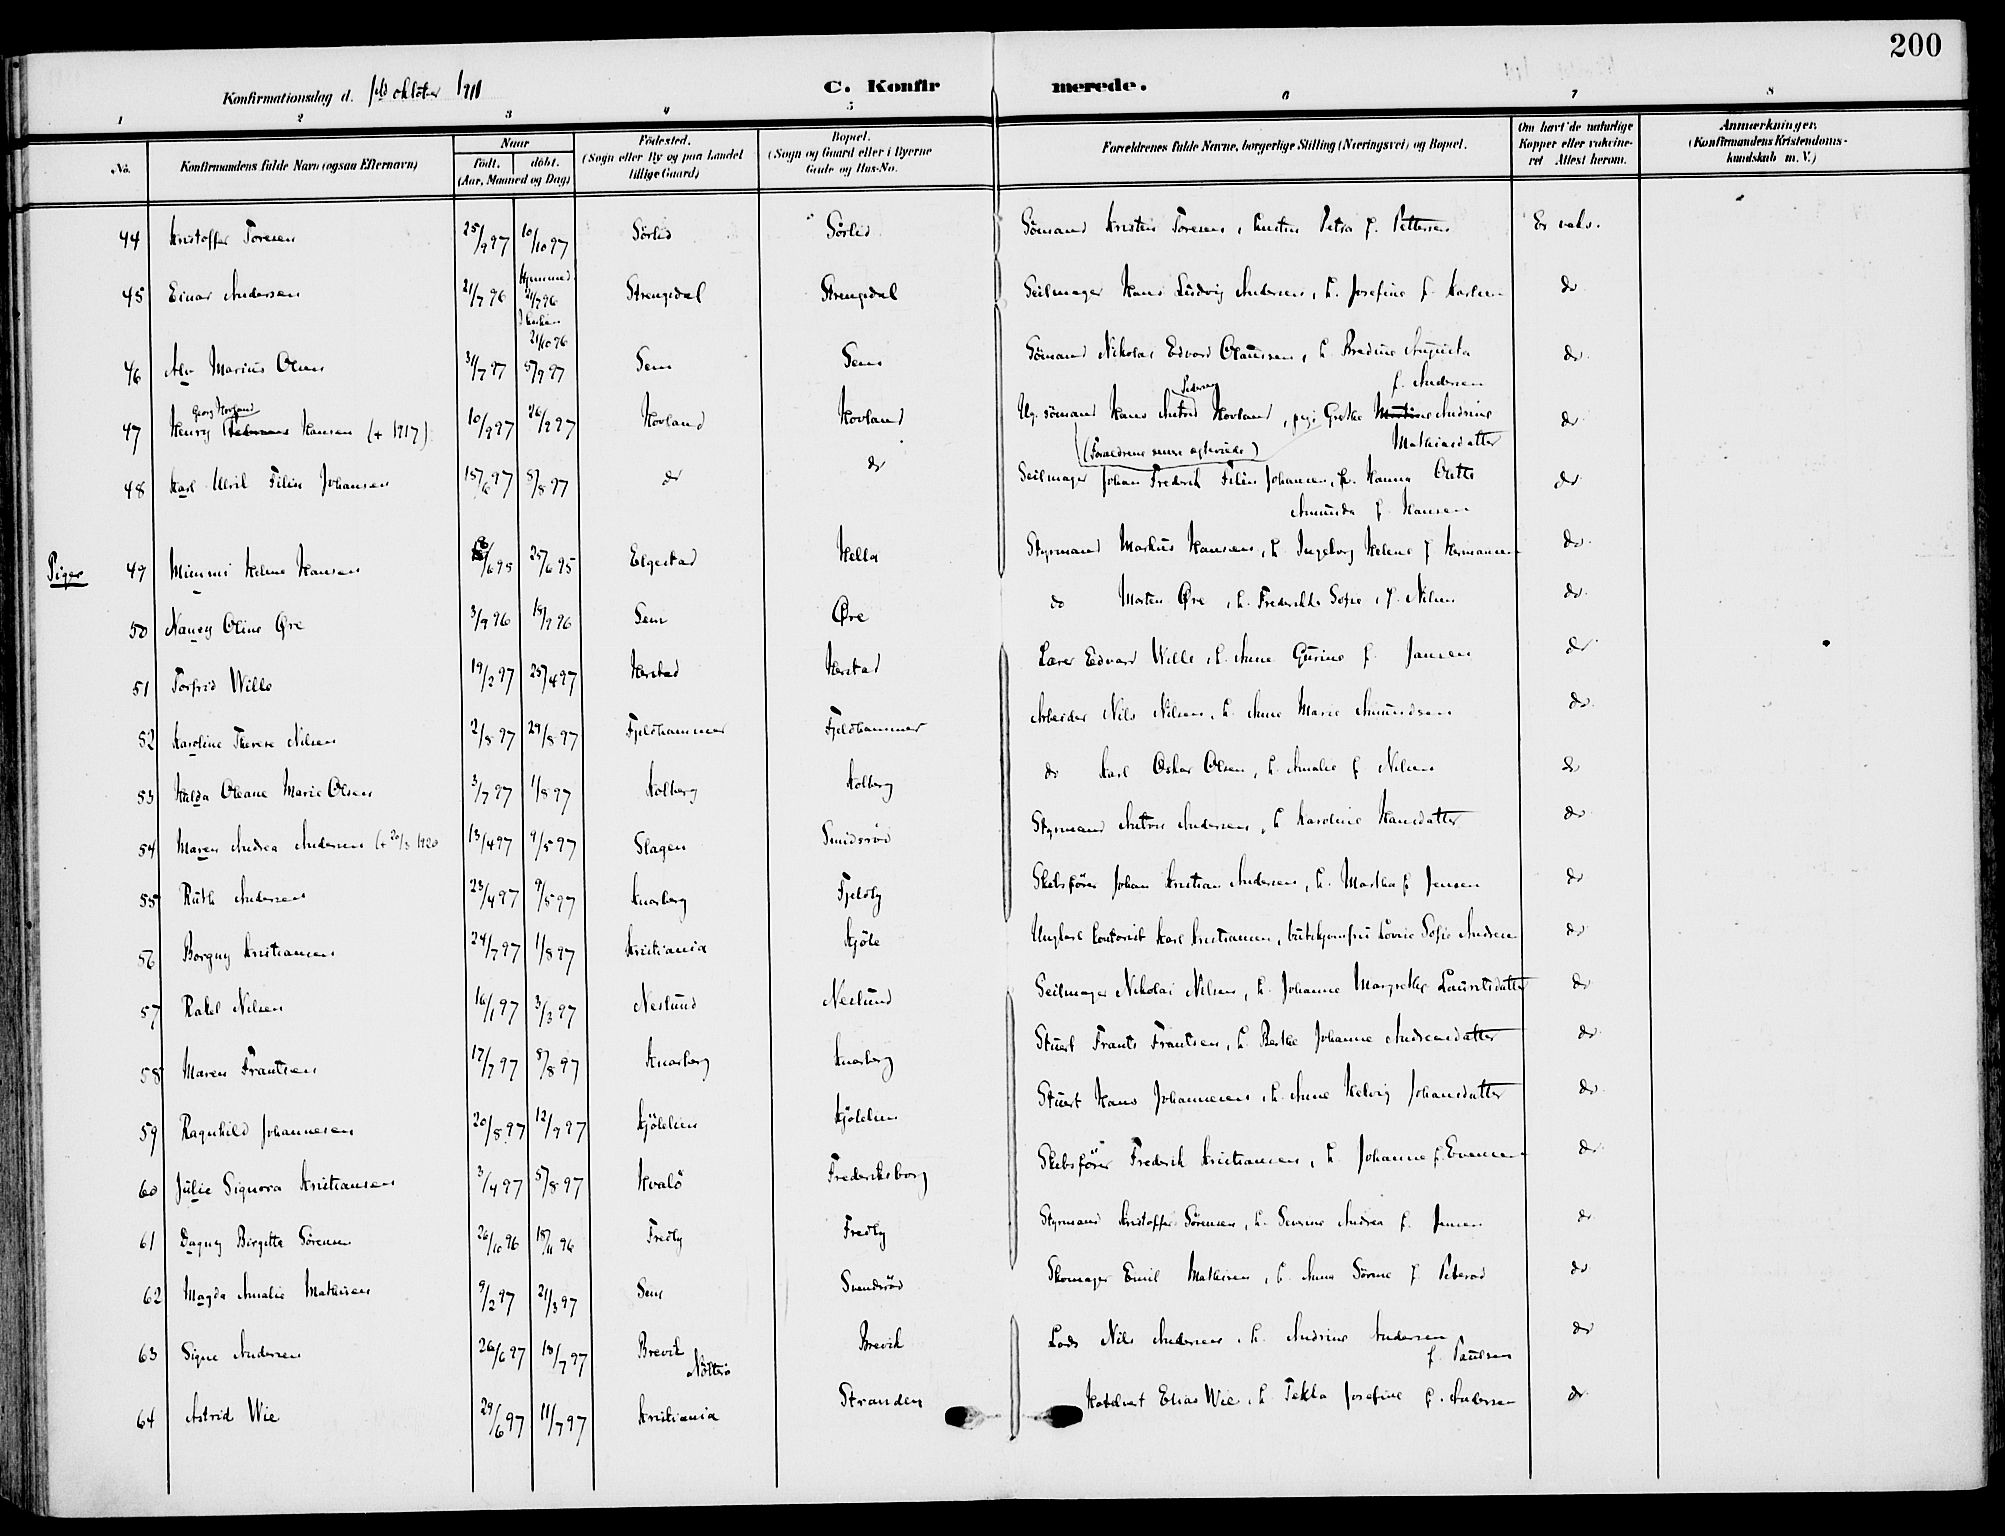 200
Konfirmationsdag d. oktober 1911
C. Konfirmerede.
1 2 3 4 5 6 7 8
No. Konfirmandens fulde Navn (ogsaa Efternavn) Naar født. døbt. (Aar, Maaned og Dag) Fødested. (Sogn eller By og paa Landet tillige Gaard) Bopæl. (Sogn og Gaard eller i Byerne Gade og Hus-No. Forældrenes fulde Navne, borgerlige Stilling (Næringsvei) og Bopæl. Om havt de naturlige Kopper eller vakcineret Attest herom. Anmærkninger. (Konfirmandens Kristendomskundskab m. V.)
44 Kristoffer Toresen 25/9 97 10/10 97 Sörlid Sörlid Sömand Kristen Toresen, Hustru Petra f. Pettersen Er vaks.
45 Einar Andersen 21/7 96 Hjemmed. 21/7 96 21/10 96 Strengsdal Strengsdal Seilmager Hans Ludvig Andersen, h. Josefine f. Karlsen do
46 Alv Marius Olsen 31/7 97 5/9 97 Sem Sem Sömand Nikolai Edvard Olaussen, h. Bredine Augusta f. Andersen do
47 Henry Georg Hovland Hansen (+ 1917) 10/9 97 26/9 97 Hovland Hovland Ug. sömand Hans Astrid Pedersen Hovland, pige Grethe Andrine Mathiasdatter do
(Forældrene senere egteviede)
48 Karl Ulrik Filin Johansen 15/6 97 8/8 97 do do Seilmager Johan Frederik Filin Johansen, h. Hanna Olette Amunda f. Hansen do
Piger 49 Mimmi Helene Hansen /6 95 25/6 95 Elgestad Hella Styrmand Markus Hansen, h. Ingeborg Helene f. Hermansen do
50 Nancy Oline Øre 3/9 96 18/9 96 Sem Øre do Morten Øre, h. Fredrikke Sofie f. Nilsen do
51 Torfrid Wille 19/2 97 25/4 97 Herstad Herstad Lærer Edvard Wille, h. Anne Gurine f. Jansen do
52 Karoline Therese Nilsen 2/8 97 29/8 97 Fjeldhammer Fjeldhammer Arbeider Nils Nilsen, h. Anne Marie Amundsen do
53 Hulda Oleane Marie Olsen 3/7 97 1/8 97 Kolberg Kolberg do Karl Oskar Olsen, h. Amalie f. Nilsen do
54 Maren Andrea Andersen (+ 20/3 1920 13/4 97 9/5 97 Slagen Smidsröd Styrmand Anton Andersen, h. Karoline Hansdatter do
55 Ruth Andersen 23/4 97 9/5 97 Knarberg Fjeldby Skibsförer Johan Kristian Andersen, h. Martha f. Jensen do
56 Borgny Kristiansen 24/7 97 1/8 97 Kristiania Kjöle Ungkarl kontorist Karl Kristiansen, butikjomfru Lovise Sofie Andersen do
57 Rakel Nilsen 16/1 97 3/3 97 Neslund Neslund Seilmager Nikolai Nilsen, h. Johanne Margrethe Lauritsdatter do
58 Maren Frantsen 17/7 97 8/8 97 Knarberg Knarberg Stuert Frants Frantsen, h. Berthe Johanne Andreasdatter do
59 Ragnhild Johannesen 20/8 97 12/9 97 Kjölelien Kjölelien Stuert Hans Johannesen, h. Anne Helvig Johansdatter do
60 Julie Signora Kristiansen 3/4 97 5/8 97 Hvalö Frederiksborg Skibsförer Frederik Kristiansen, h. Johanne f. Evensen do
61 Dagny Birgitte Sörensen 26/10 96 15/11 96 Fredly Fredly Styrmand Kristoffer Sörensen, h. Severine Andrea f. Jensen do
62 Magda Amalie Mathisen 9/2 97 21/3 97 Sem Svendsröd Skomager Emil Mathisen, h. Anna Sörine f. Petersd do
63 Signe Andersen 26/6 97 18/7 97 Brevik Nötterö Brevik Lods Nils Andersen, h. Andrine Andersen f. Paulsen do
64 Astrid Wie 29/6 97 11/7 97 Kristiania Stranden Elias Wie, h. Tekla Josefine f. Andersen do